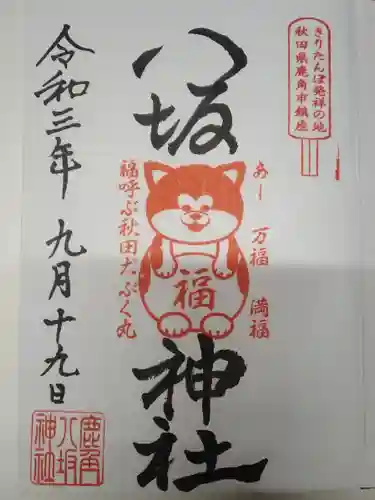 きりたんぽ発祥の地
秋田県鹿角市鎮座
八坂神社
あー 万福 満福
福
福呼ぶ秋田犬ぶく丸
令和三年 九月十九日
鹿角
八坂
神社